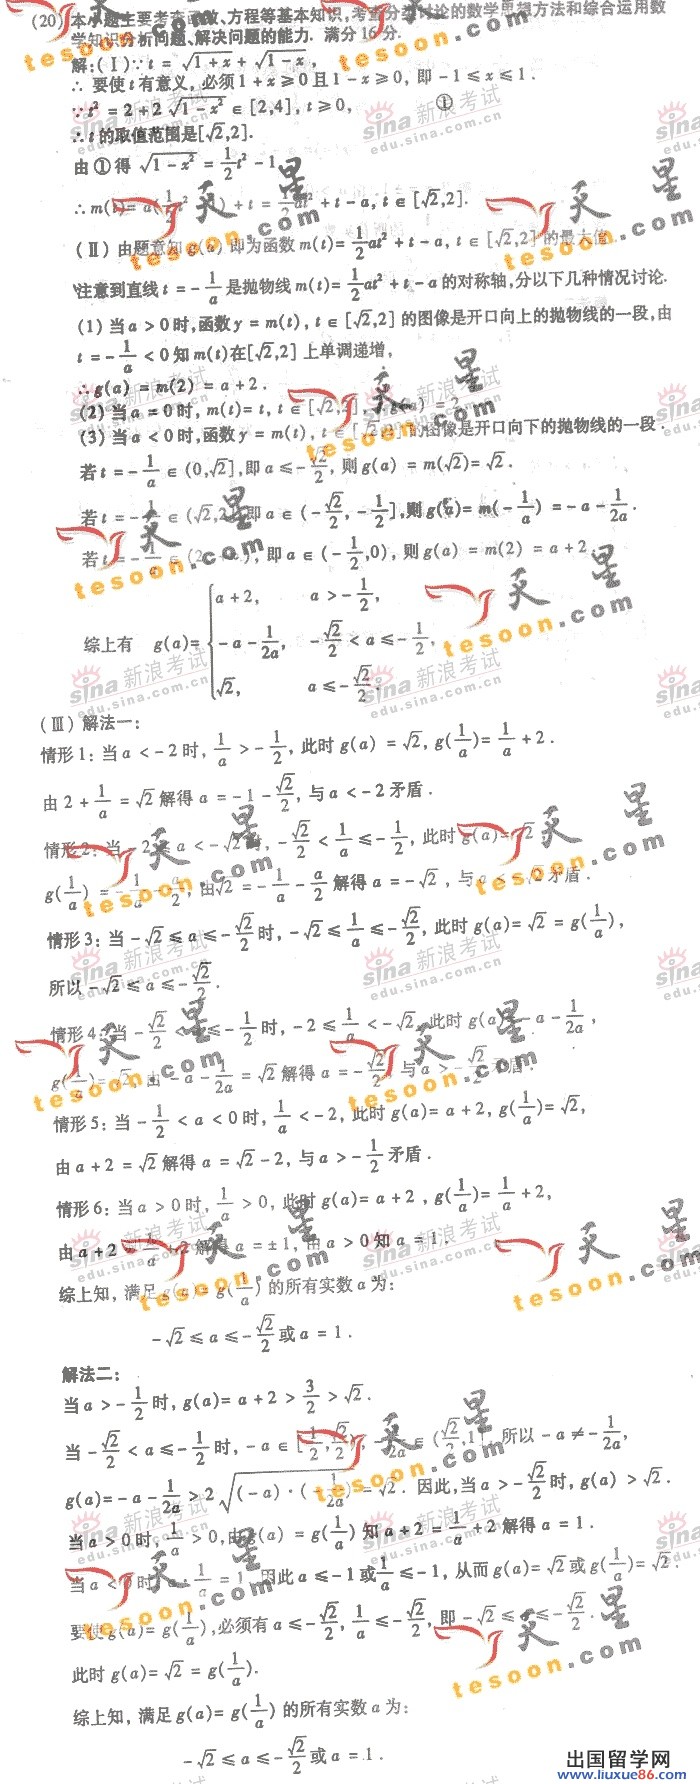 (20)本小题主要考查函数、方程等基本知识,考查分类讨论的数学思想方法和综合运用数
学知识分析问题、解决问题的能力. 满分16分.
解:(Ⅰ)∵ t = √(1+x) + √(1-x),
∴ 要使t有意义,必须1+x≥0且1-x≥0,即-1≤x≤1.
∵t² = 2+2√(1-x²) ∈[2,4],t≥0, ①
∴t的取值范围是[√2,2].
由①得 √(1-x²) = 1/2 t² - 1
∴m(t)=a(1/2 t² - 1)+t = 1/2 at² + t - a, t∈[√2,2].
(Ⅱ) 由题意知g(a)即为函数m(t)= 1/2 at² + t - a, t∈[√2,2]的最大值.
注意到直线t = -1/a 是抛物线m(t)= 1/2 at² + t - a的对称轴,分以下几种情况讨论.
(1) 当a>0时,函数y = m(t), t∈[√2,2]的图像是开口向上的抛物线的一段,由
t = -1/a < 0知m(t)在[√2,2]上单调递增,
∴g(a) = m(2) = a+2.
(2) 当a=0时, m(t)=t, t∈[√2,2], g(a) = 2.
(3) 当a<0时,函数y = m(t), t∈[√2,2]的图像是开口向下的抛物线的一段.
若t = -1/a ∈(0,√2],即a≤-√2/2, 则g(a) = m(√2)=√2.
若t = -1/a ∈(√2,2],即a∈(-√2/2, -1/2],则g(a)= m(-1/a) = -a - 1/2a.
若t = -1/a ∈(2, ),即a∈(-1/2,0), 则g(a) = m(2) = a+2.
综上有 g(a)= { a+2, a>-1/2,
-a - 1/2a, -√2/2 <a≤-1/2,
√2, a≤-√2/2.
(Ⅲ) 解法一:
情形1: 当a<-2时, 1/a > -1/2, 此时g(a) = √2, g(1/a)= 1/a + 2.
由2+1/a = √2解得a = -1-√2/2, 与a<-2矛盾.
情形2: 当-2≤a<-√2时, -√2/2 < 1/a ≤ -1/2, 此时g(a)=√2,
g(1/a) = -1/a - a/2, 由√2 = -1/a - a/2 解得a = -√2, 与a<-√2矛盾.
情形3: 当-√2≤a≤-√2/2时, -√2≤1/a≤-√2/2, 此时g(a)=√2 = g(1/a),
所以-√2≤a≤-√2/2.
情形4: 当-√2/2<a≤-1/2时, -2≤1/a<-√2, 此时g(a)=-a-1/2a,
g(1/a)=√2, 由-a-1/2a = √2解得a = -√2/2, 与a>-√2/2矛盾.
情形5: 当-1/2<a<0时, 1/a<-2, 此时g(a)=a+2, g(1/a)=√2,
由a+2=√2解得a=√2-2, 与a>-1/2矛盾.
情形6: 当a>0时, 1/a>0, 此时g(a)=a+2, g(1/a)=1/a+2,
由a+2=1/a+2解得a=±1, 由a>0知a=1.
综上知, 满足g(a)=g(1/a)的所有实数a为:
-√2≤a≤-√2/2或a=1.
解法二:
当a>-1/2时, g(a)=a+2>3/2>√2.
当-√2/2<a≤-1/2时, -a∈[1/2,√2/2), -1/2a∈(√2/2,1], 所以-a≠-1/2a,
g(a)=-a-1/2a>2√((-a)·(-1/2a))=√2. 因此,当a>-√2/2时, g(a)>√2.
当a>0时, 1/a>0, 由g(a)=g(1/a)知a+2=1/a+2解得a=1.
当a<0时, a·1/a=1, 因此a≤-1或1/a≤-1, 从而g(a)=√2或g(1/a)=√2.
要使g(a)=g(1/a),必须有a≤-√2/2, 1/a≤-√2/2, 即-√2≤a≤-√2/2.
此时g(a)=√2=g(1/a).
综上知, 满足g(a)=g(1/a)的所有实数a为:
-√2≤a≤-√2/2或a=1.
天星
tesoon.com
sina新浪考试
edu.sina.com.cn
出国留学网
www.liuxue86.com